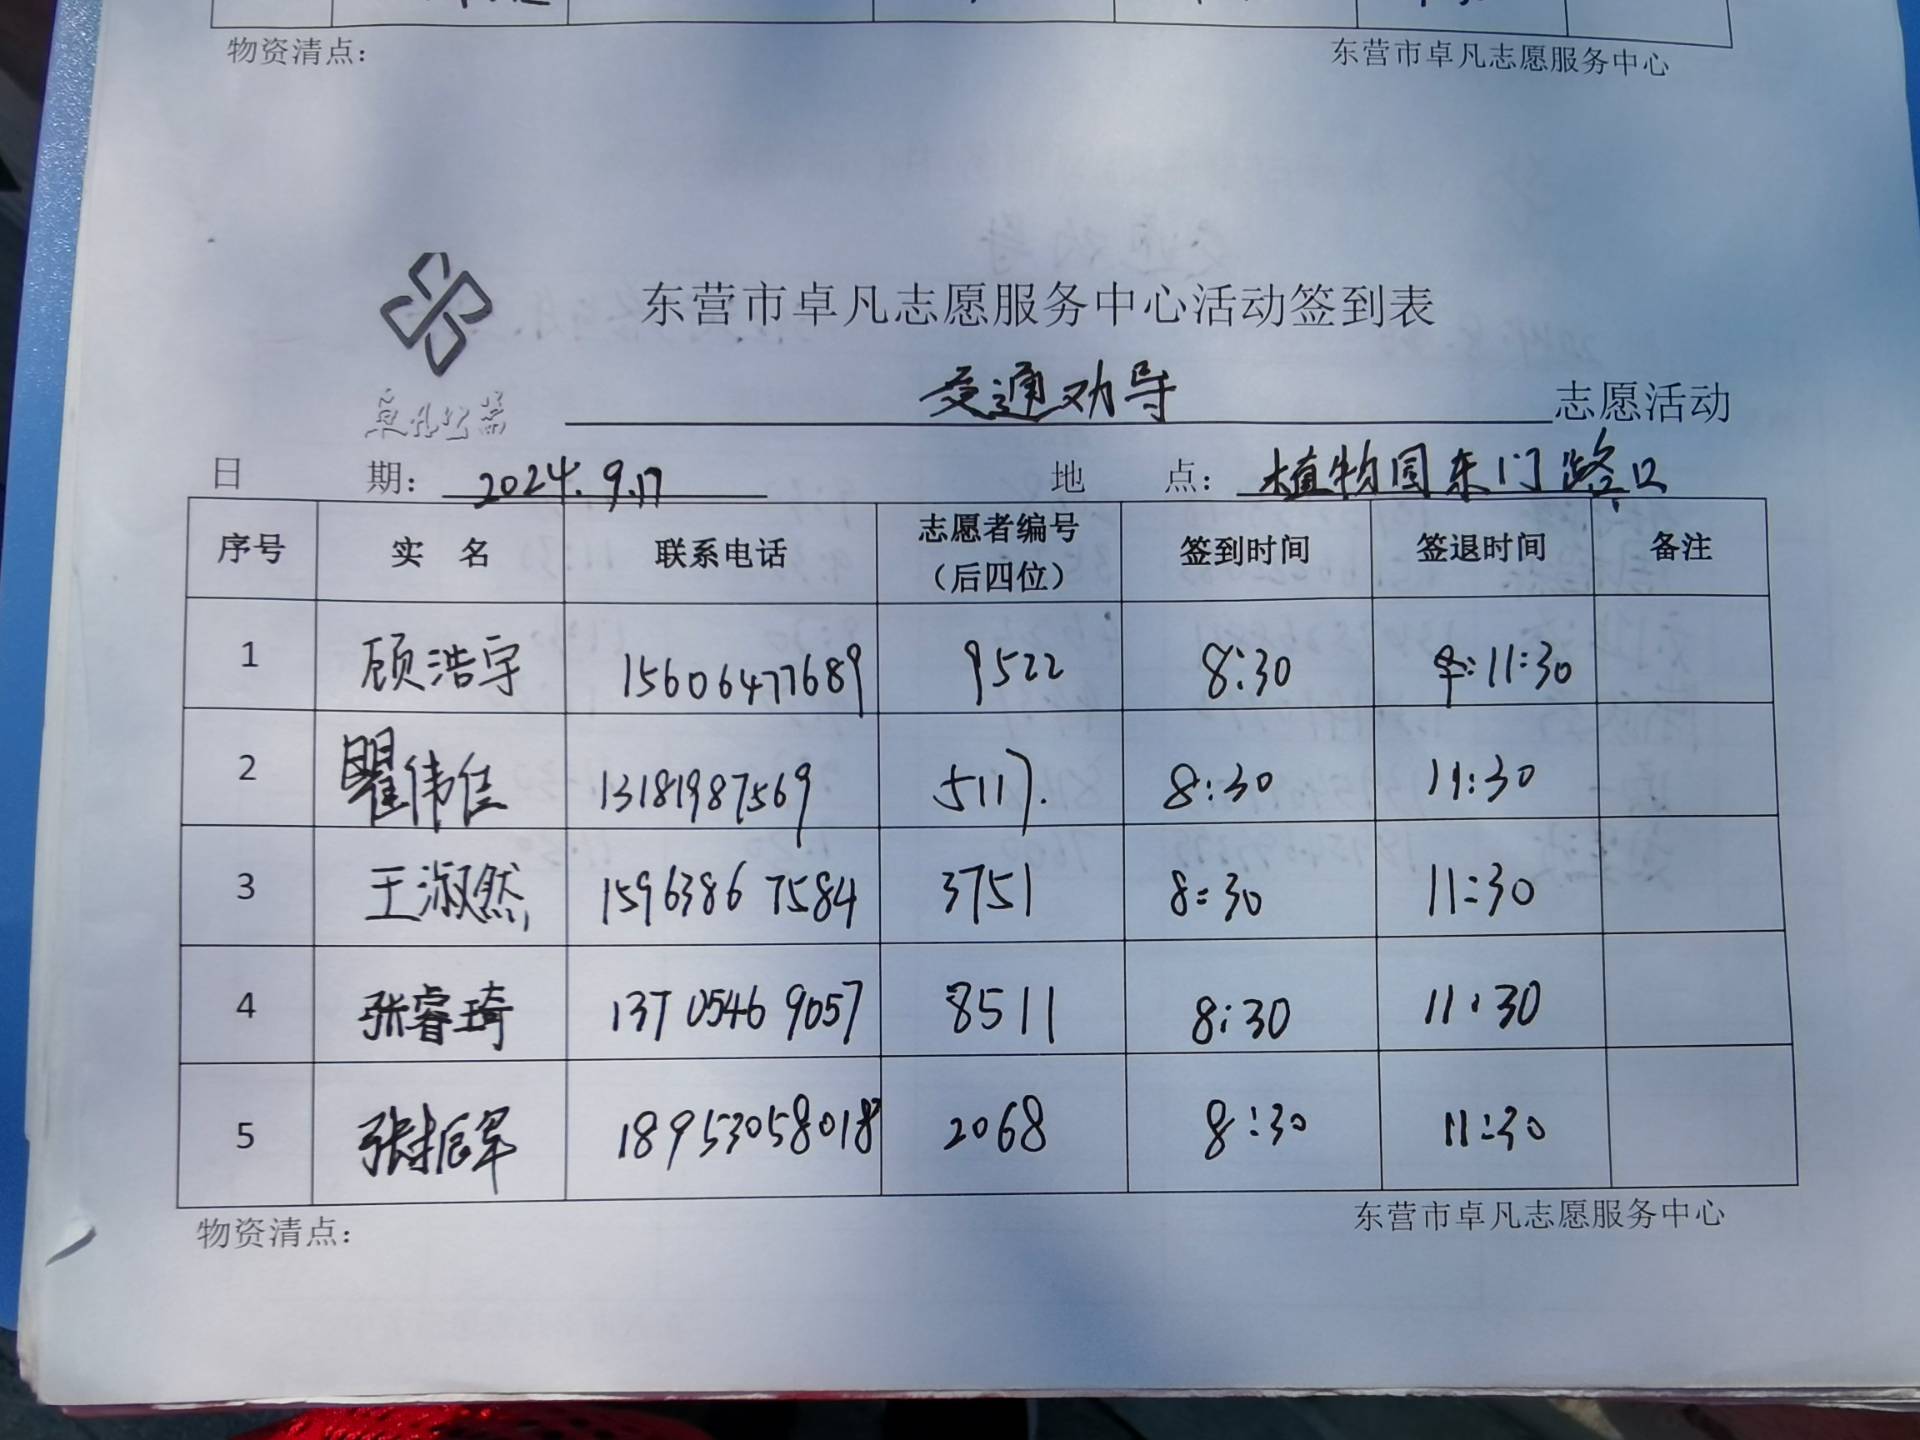 物资清点：
东营市卓凡志愿服务中心
东营市卓凡志愿服务中心活动签到表
卓凡公益
交通劝导志愿活动
日 期：2024.9.17 地 点：植物园东门路口
序号 实 名 联系电话 志愿者编号（后四位） 签到时间 签退时间 备注
1 顾浩宇 15606477689 9522 8:30 11:30
2 瞿伟佳 13181987569 5117. 8:30 11:30
3 王淑然 15963867584 3751 8:30 11:30
4 张睿琦 13705469057 8511 8:30 11:30
5 张振军 18953058018 2068 8:30 11:30
物资清点：
东营市卓凡志愿服务中心